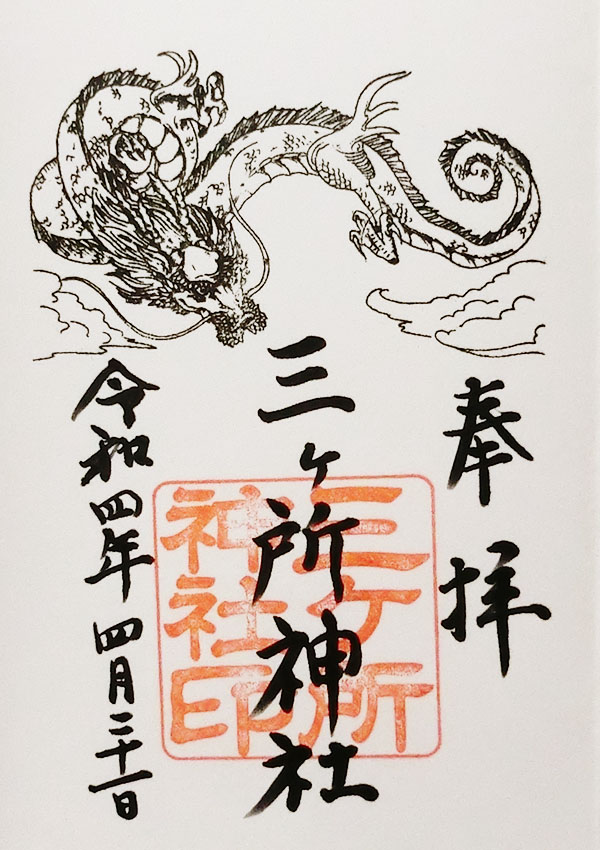 奉拝
三ヶ所神社
三ケ所
神社印
令和四年四月二十一日